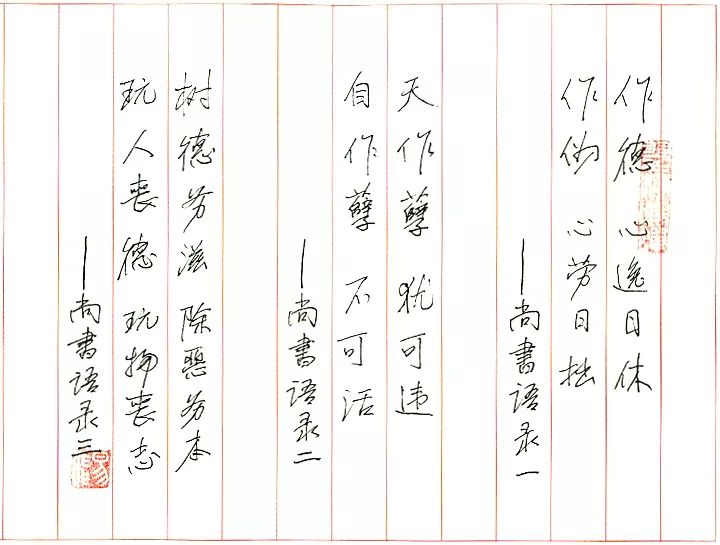 作德 心逸日休
作伪 心劳日拙
——尚书语录一
天作孽 犹可违
自作孽 不可活
——尚书语录二
树德务滋 除恶务本
玩人丧德 玩物丧志
——尚书语录三